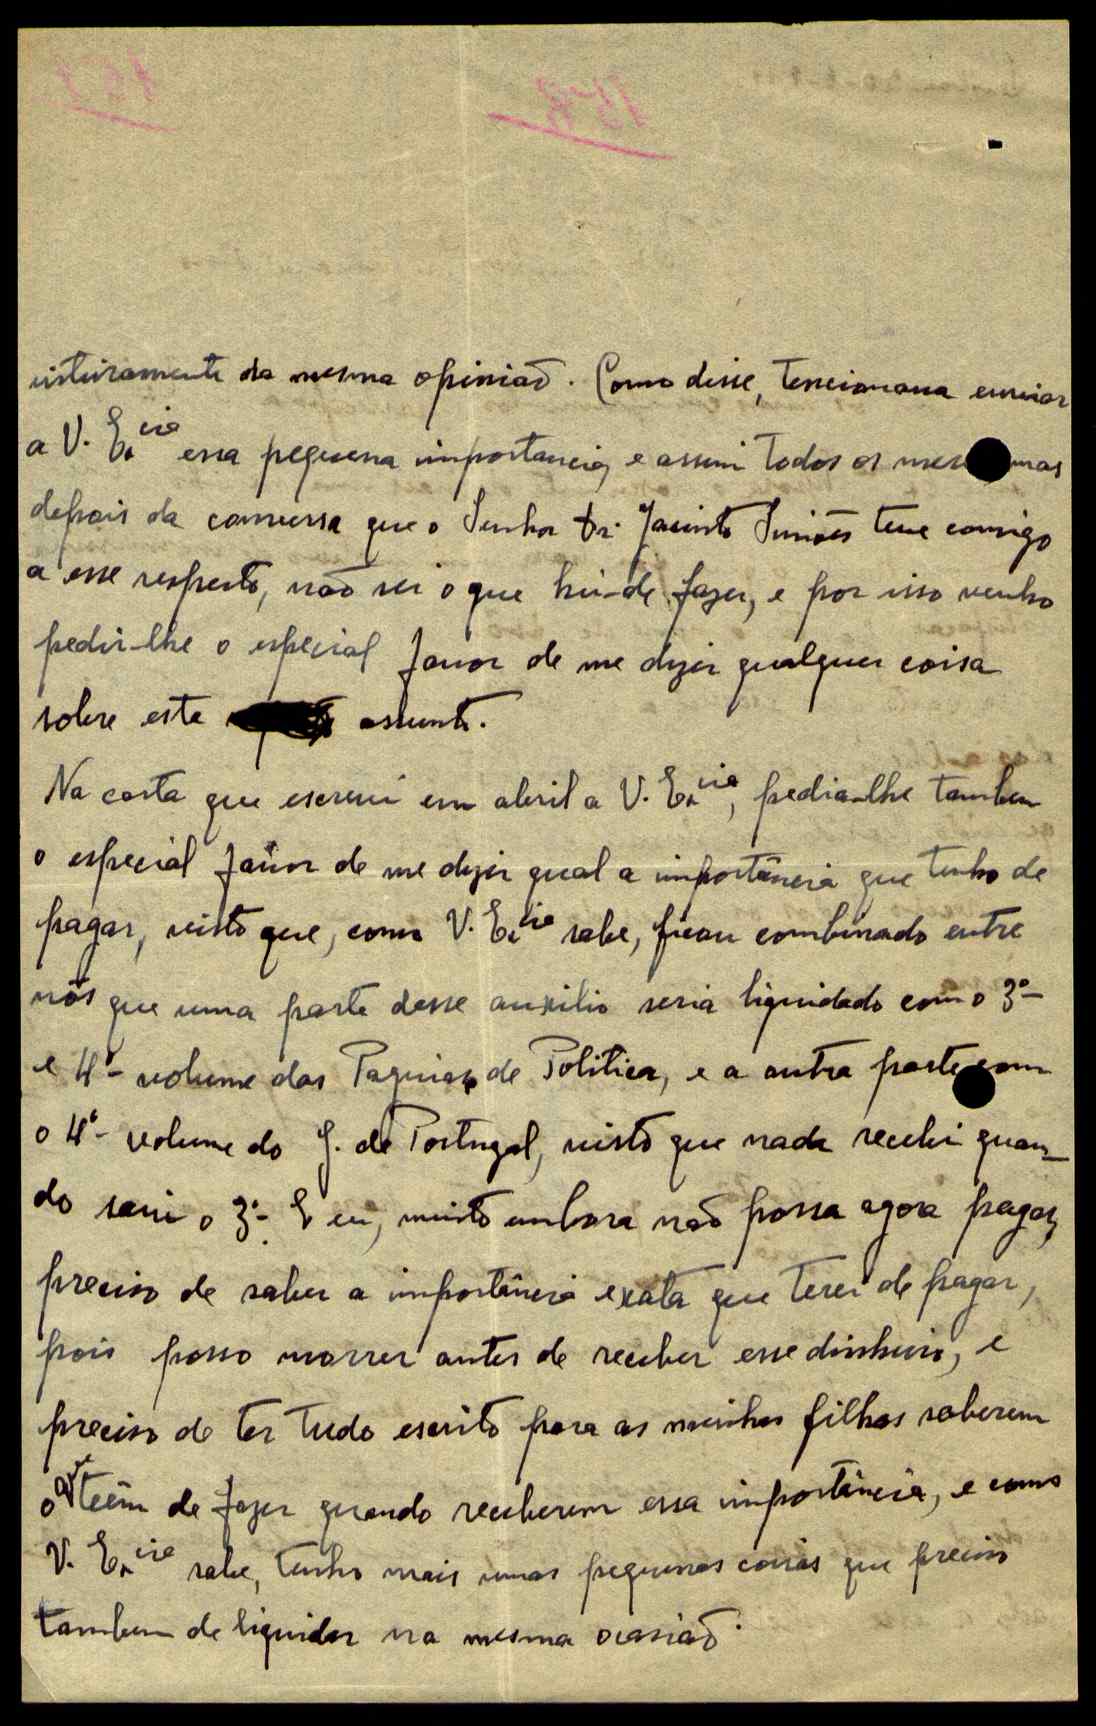 inteiramente da mesma opinião. Como disse, tencionava enviar
a V. Ex.cia essa pequena importancia, e assim todos os meses mas
depois da conversa que o Senhor Dr. Jacinto Simões teve comigo
a esse respeito, não sei o que hei-de fazer, e por isso venho
pedir-lhe o especial favor de me dizer qualquer coisa
sobre este assunto.
Na carta que escrevi em abril a V. Ex.cia, pedia-lhe tambem
o especial favor de me dizer qual a importância que tenho de
pagar, visto que, como V. Ex.cia sabe, ficou combinado entre
nós que uma parte desse auxilio seria liquidado com o 3º-
e 4º- volume das Paginas de Politica, e a outra parte com
o 4º- volume do J. de Portugal, visto que nada recebi quan-
do saiu o 3º-. E eu, muito embora não possa agora pagar,
preciso de saber a importância exata que terei de pagar,
pois posso morrer antes de receber esse dinheiro, e
preciso de ter tudo escrito para as minhas filhas saberem
o que teêm de fazer quando receberem essa importância, e como
V. Ex.cia sabe, tenho mais umas pequenas coisas que preciso
tambem de liquidar na mesma ocasião.